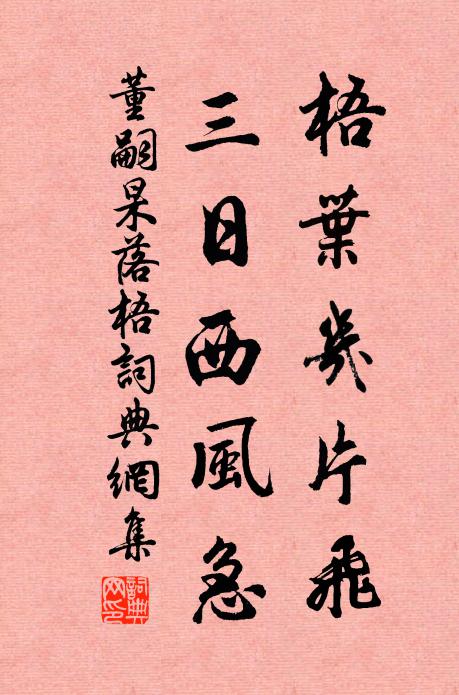 梧葉幾片飛
三日西風急
董嗣杲落梧詞典網集
詞典網印